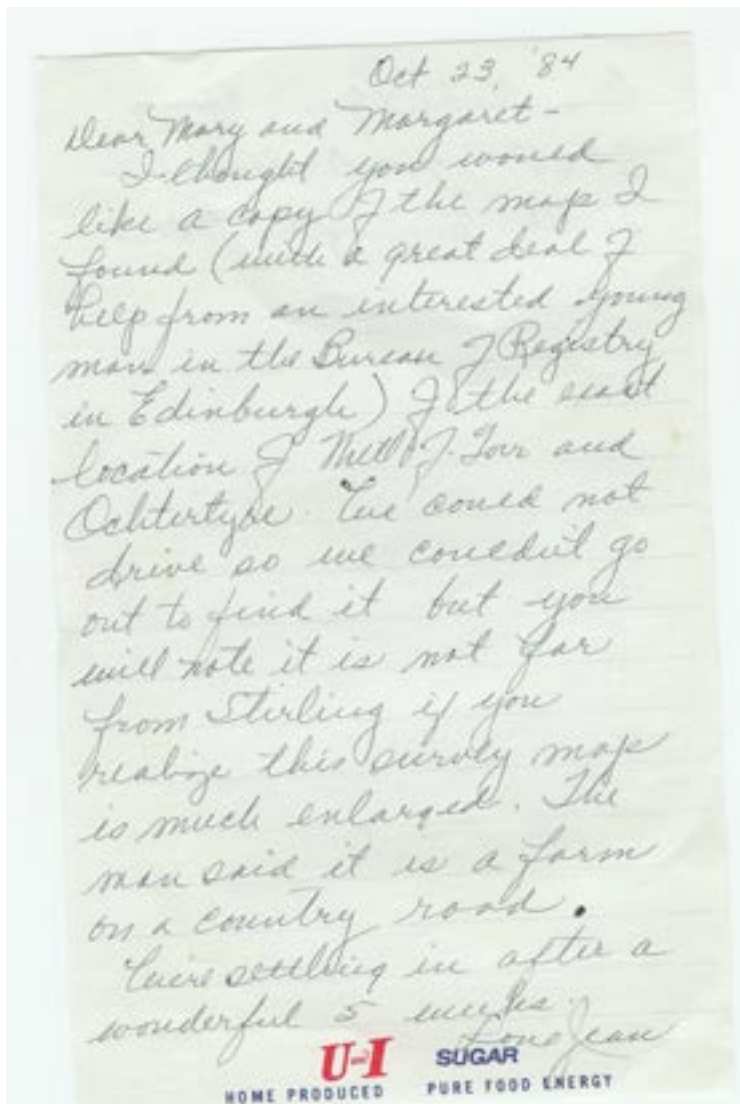 Oct 23, '84
Dear Mary and Margaret -
I thought you would
like a copy of the map I
found (with a great deal of
help from an interested young
man in the Bureau of Registry
in Edinburgh) of the exact
location of Mill of Torr and
Ochtertyre. We could not
drive so we couldn't go
out to find it but you
will note it is not far
from Stirling if you
realize this survey map
is much enlarged. The
man said it is a farm
on a country road.
We're settling in after a
wonderful 5 weeks.
Love Jean
U and I SUGAR
HOME PRODUCED PURE FOOD ENERGY